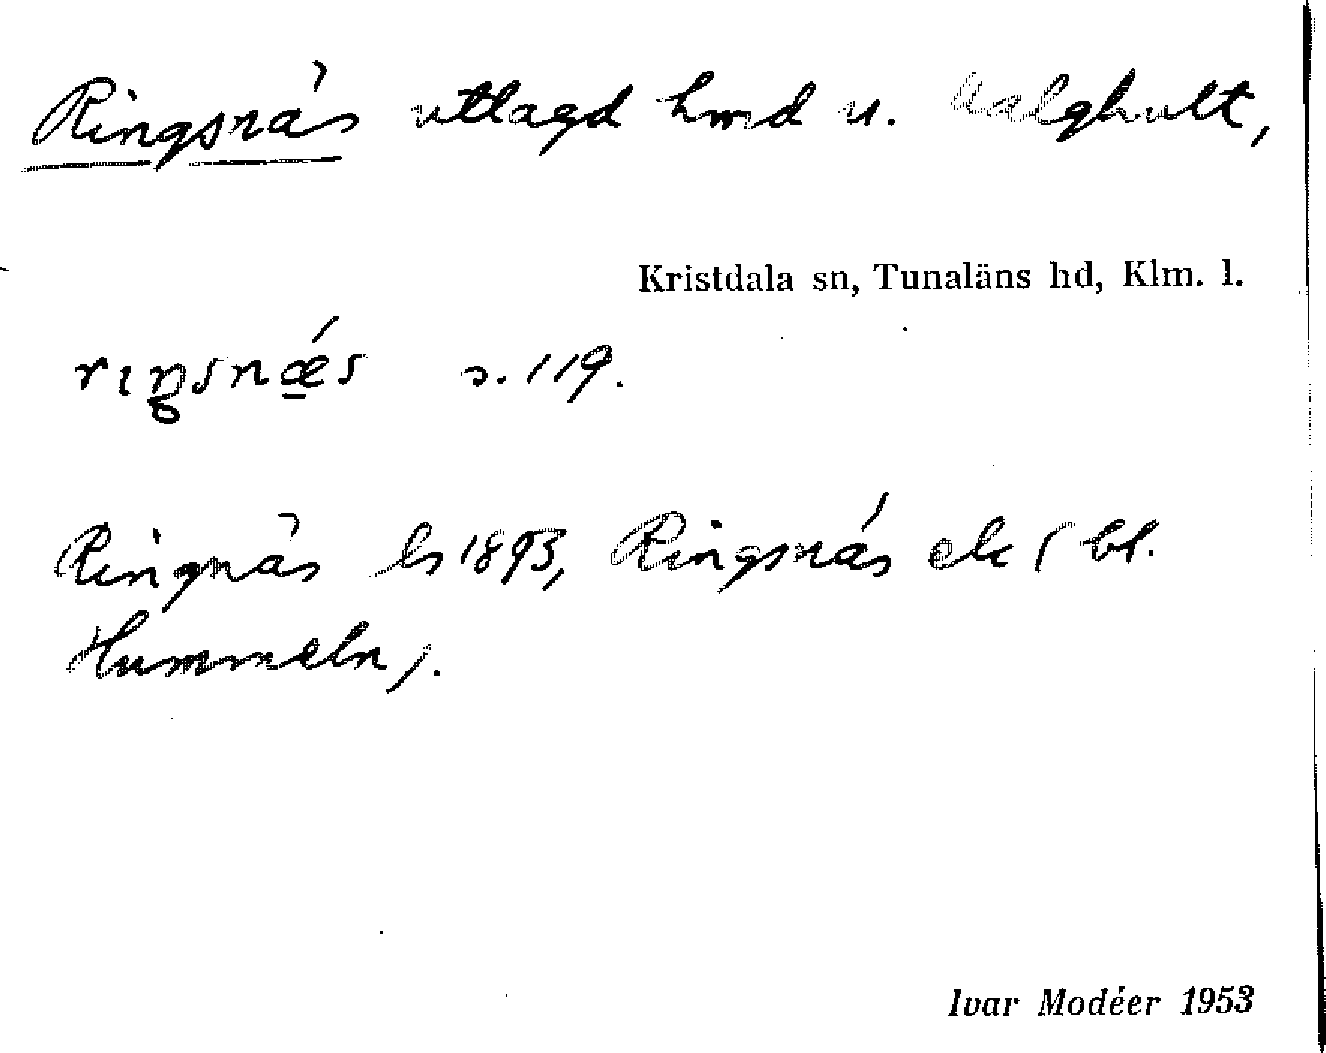 Ringsnäs utlagd hmd u. Aalghult,
Kristdala sn, Tunaläns hd, Klm. l.
rıŋsnǽ̲s s. 119.
Ringnäs ls 1893, Ringsnäs ek (bl.
Hummeln).
Ivar Modéer 1953